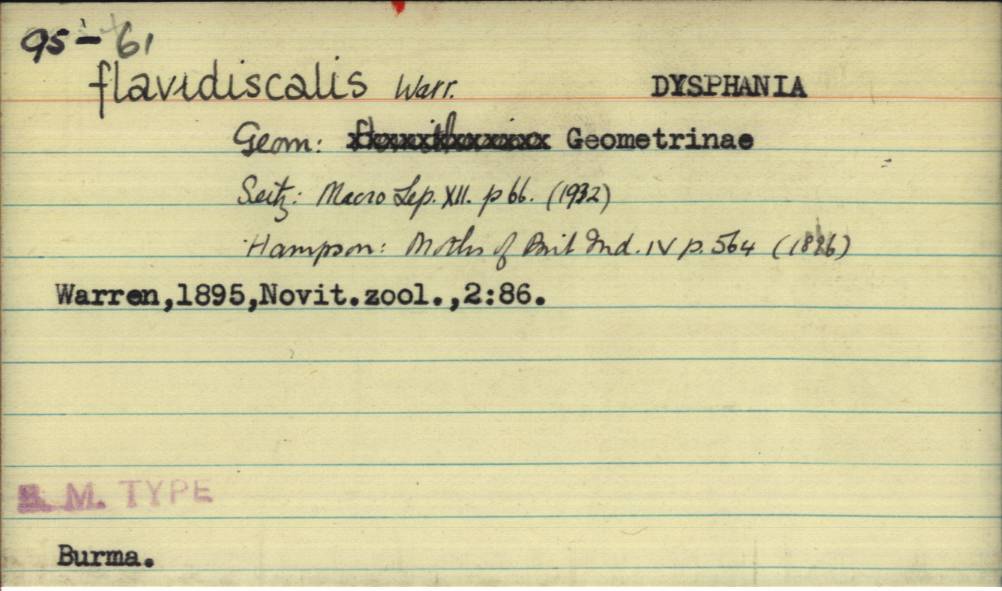 95-61
flavidiscalis Warr. DYSPHANIA
Geom: Geometrinae
Seitz: Macro Lep. XII. p 66. (1932)
Hampson: Moths of Brit Ind. IV p. 564 (1896)
Warren,1895,Novit.zool.,2:86.
B. M. TYPE
Burma.